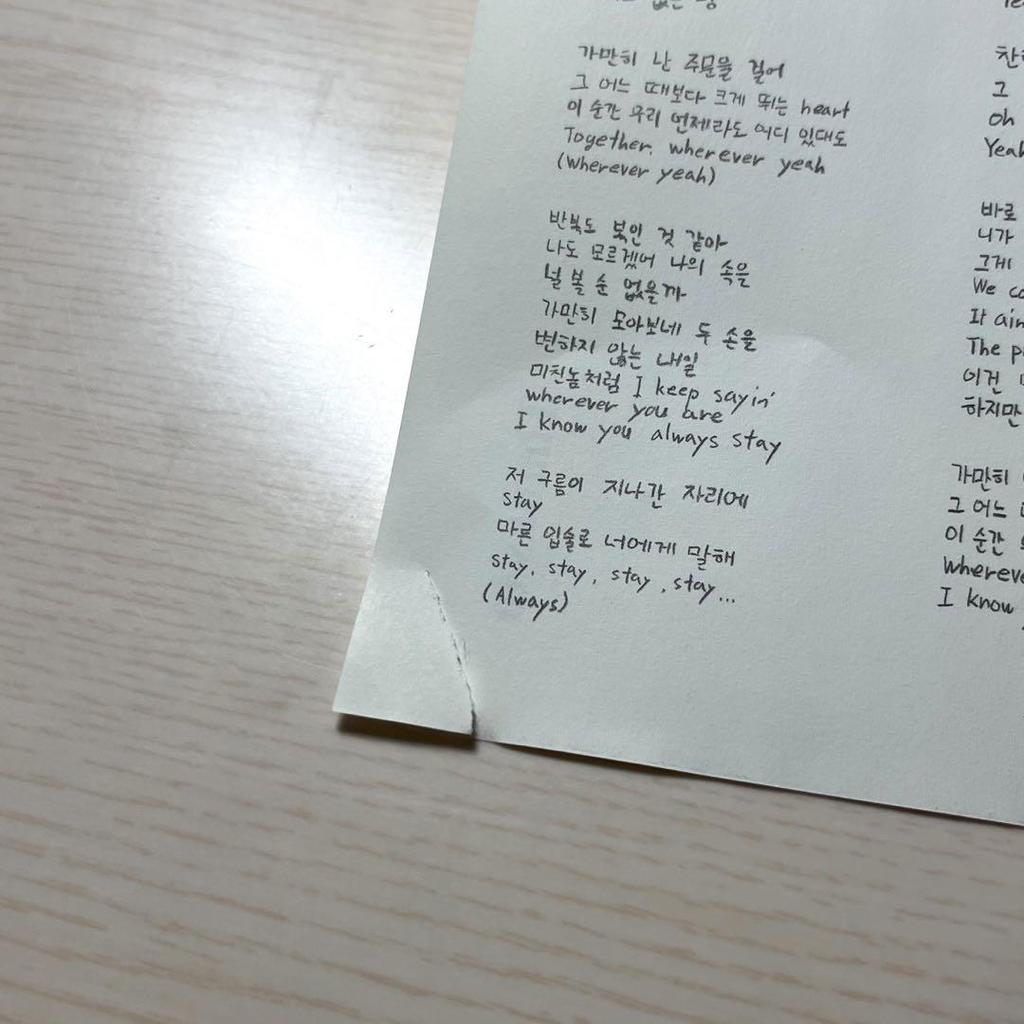 가만히 난 주문을 걸어
그 어느 때보다 크게 뛰는 heart
이 순간 우리 언제라도 어디 있대도
Together, wherever yeah
(Wherever yeah)
반복도 복인 것 같아
나도 모르겠어 나의 속을
널 볼 순 없을까
가만히 모아보네 두 손을
변하지 않는 내일
미친놈처럼 I keep sayin'
wherever you are
I know you always stay
저 구름이 지나간 자리에
stay
마른 입술로 너에게 말해
stay, stay, stay, stay...
(Always)
그
oh
Yeah
바로
니가
그게
We
It ain
The
이건
하지만
가만히
그 어느
이 순간
Whereve
I know